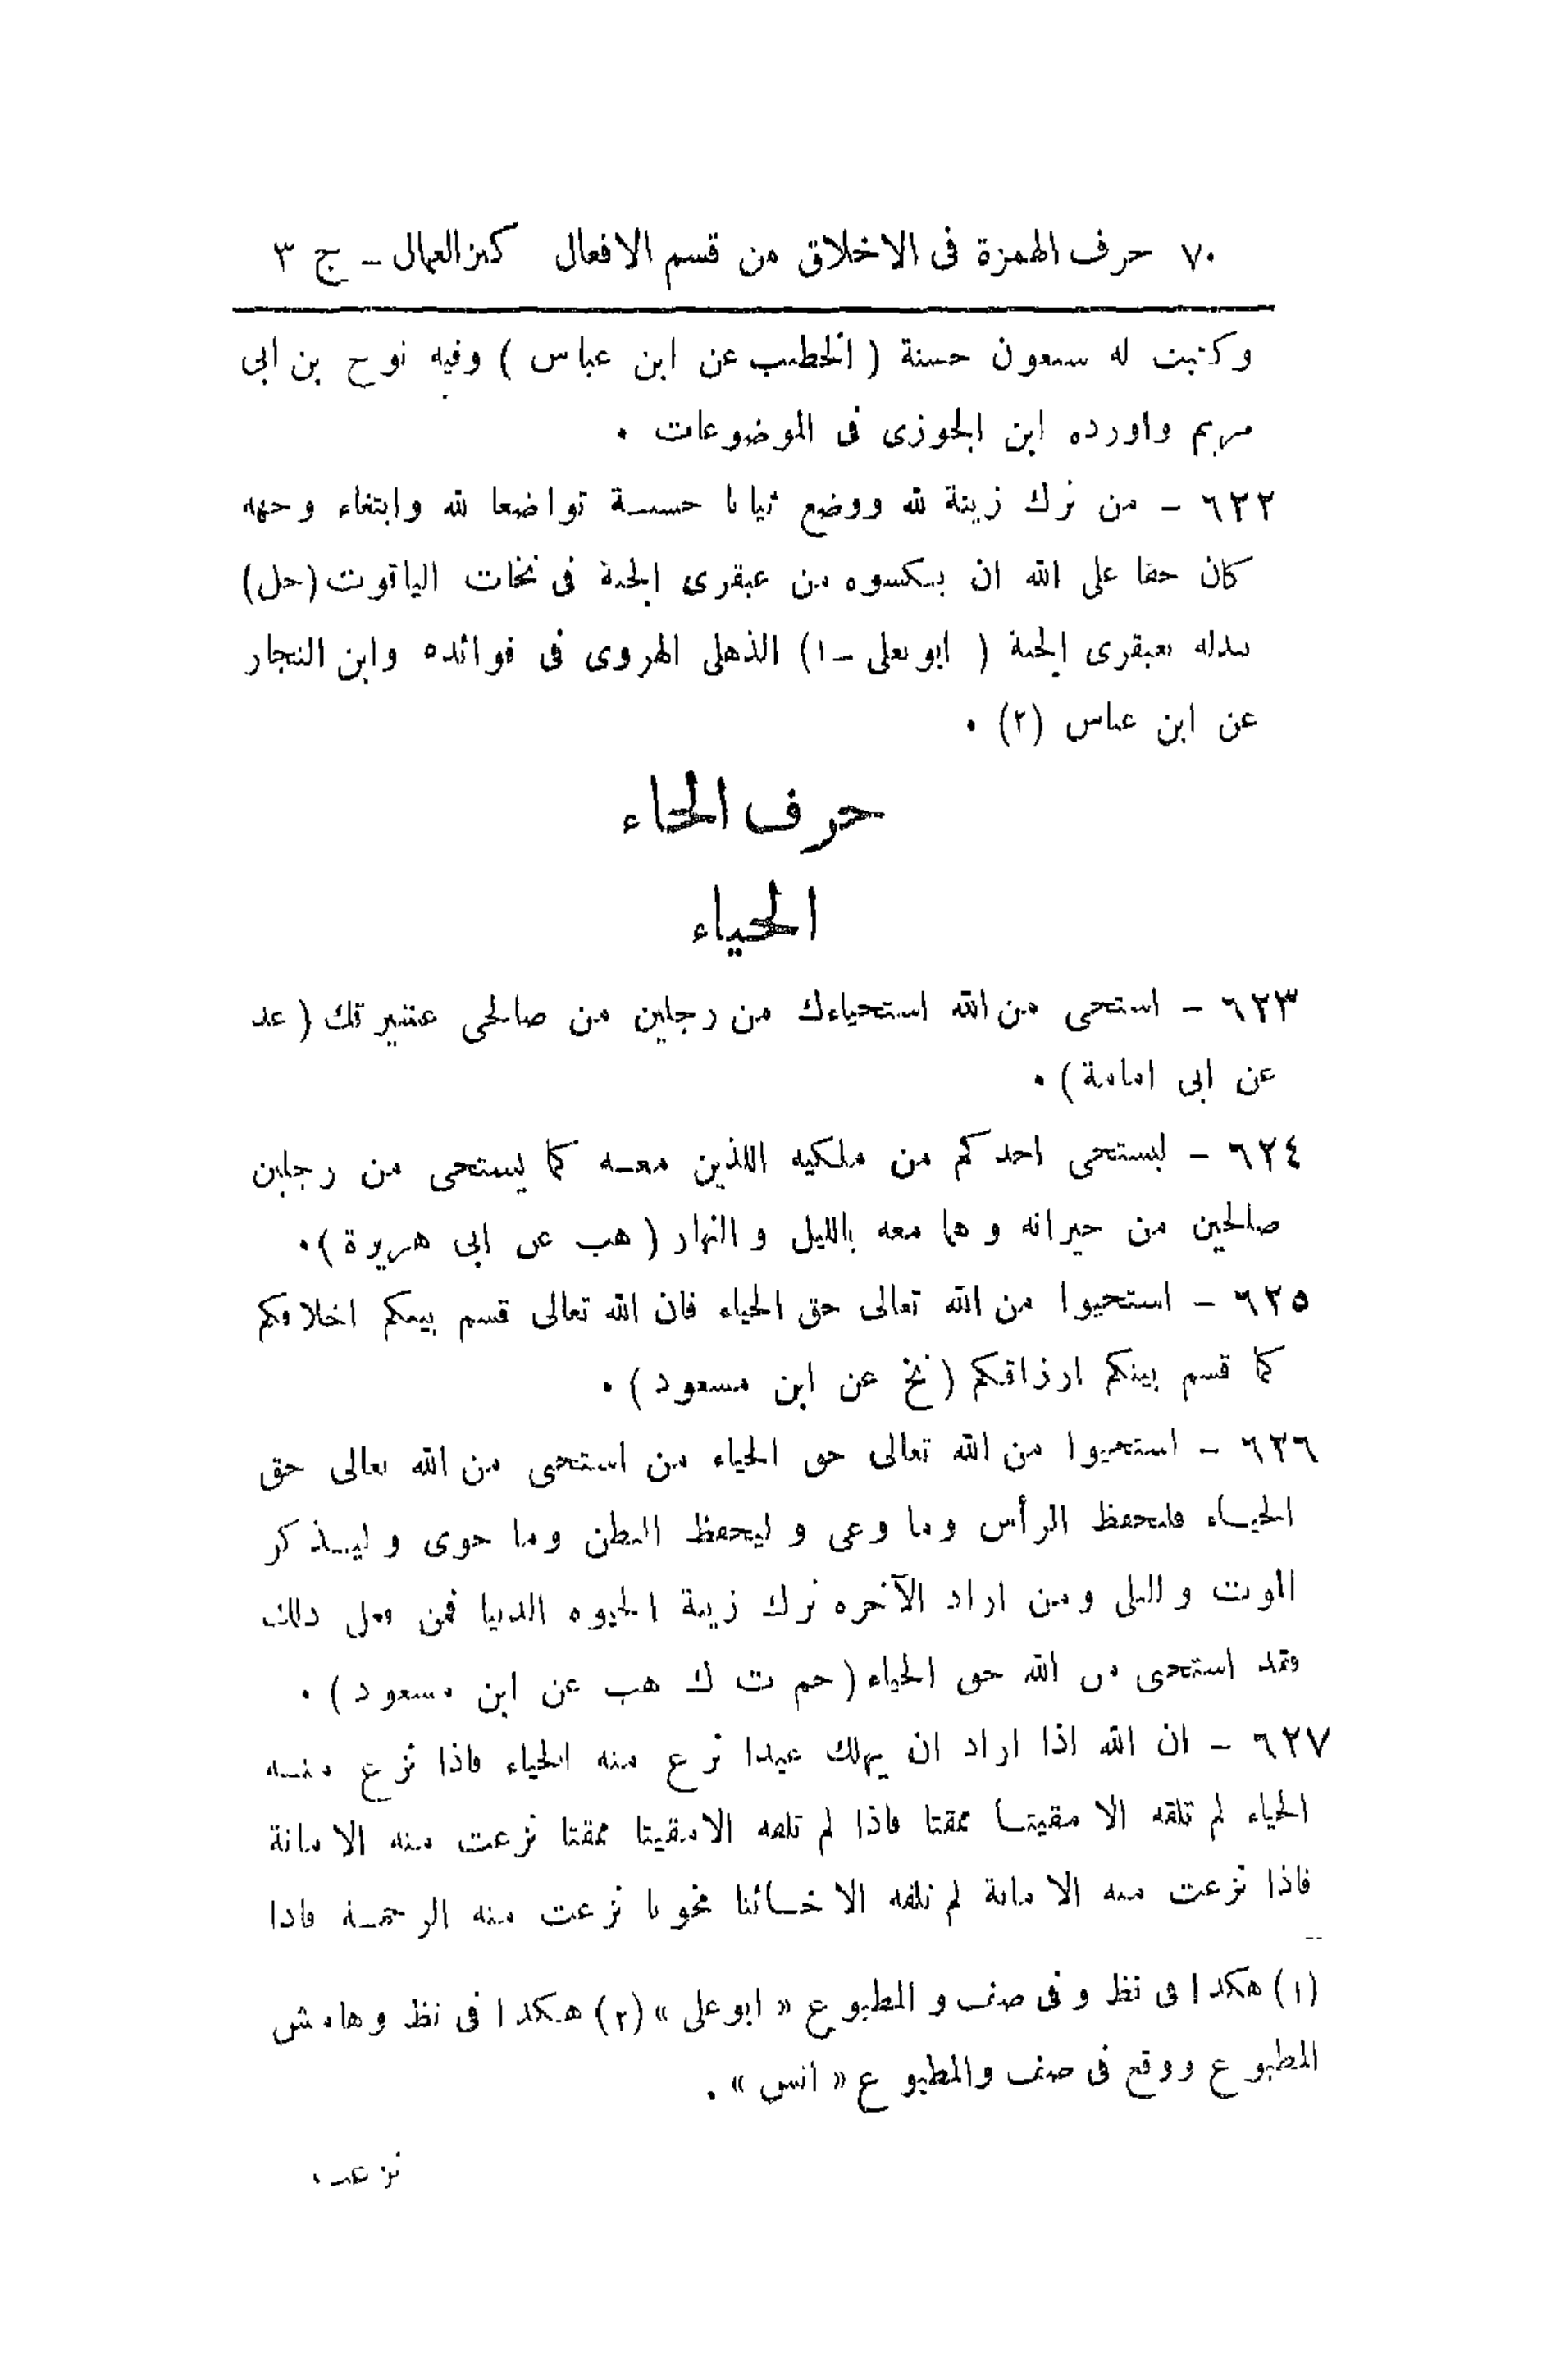 ٧٠ حرف الهمزة فى الاخلاق من قسم الافعال كنز العمال - ج ٣
وكتبت له سبعون حسنة ( الخطيب عن ابن عباس ) وفيه نوح بن ابى
مريم واورده ابن الجوزى فى الموضوعات .
٦٢٢ - من ترك زينة لله ووضع ثيابا حسنة تواضعا لله وابتغاء وجهه
كان حقا على الله ان يكسوه من عبقرى الجنة فى تخات الياقوت (حل)
بدله بعبقرى الجنة ( ابو يعلى - ١) الذهلى الهروى فى فوائده وابن النجار
عن ابن عباس (٢) .
حرف الحاء
الحياء
٦٢٣ - استحى من الله استحياءك من رجلين من صالحى عشيرتك ( عد
عن ابى امامة ) .
٦٢٤ - ليستحى احدكم من ملكيه اللذين معه كما يستحى من رجلين
صالحين من جيرانه وهما معه بالليل والنهار ( هب عن ابى هريرة ) .
٦٢٥ - استحيوا من الله تعالى حق الحياء فان الله تعالى قسم بينكم اخلاقكم
كما قسم بينكم ارزاقكم ( تخ عن ابن مسعود ) .
٦٢٦ - استحيوا من الله تعالى حق الحياء من استحى من الله تعالى حق
الحياء فليحفظ الرأس وما وعى وليحفظ البطن وما حوى وليذكر
الموت والبلى ومن اراد الآخره ترك زينة الحيوه الدنيا فمن فعل ذلك
فقد استحى من الله حق الحياء ( حم ت ك هب عن ابن مسعود ) .
٦٢٧ - ان الله اذا اراد ان يهلك عبدا نزع منه الحياء فاذا نزع منه
الحياء لم تلقه الا مقيتا ممقتا فاذا لم تلقه الا مقيتا ممقتا نزعت منه الامانة
فاذا نزعت منه الامانة لم تلقه الا خائنا مخونا نزعت منه الرحمة فاذا
(١) هكذا فى نظ وفى صف والمطبوع « ابو على » (٢) هكذا فى نظ وهامش
المطبوع ووقع فى صف والمطبوع « انس » .
نزعت